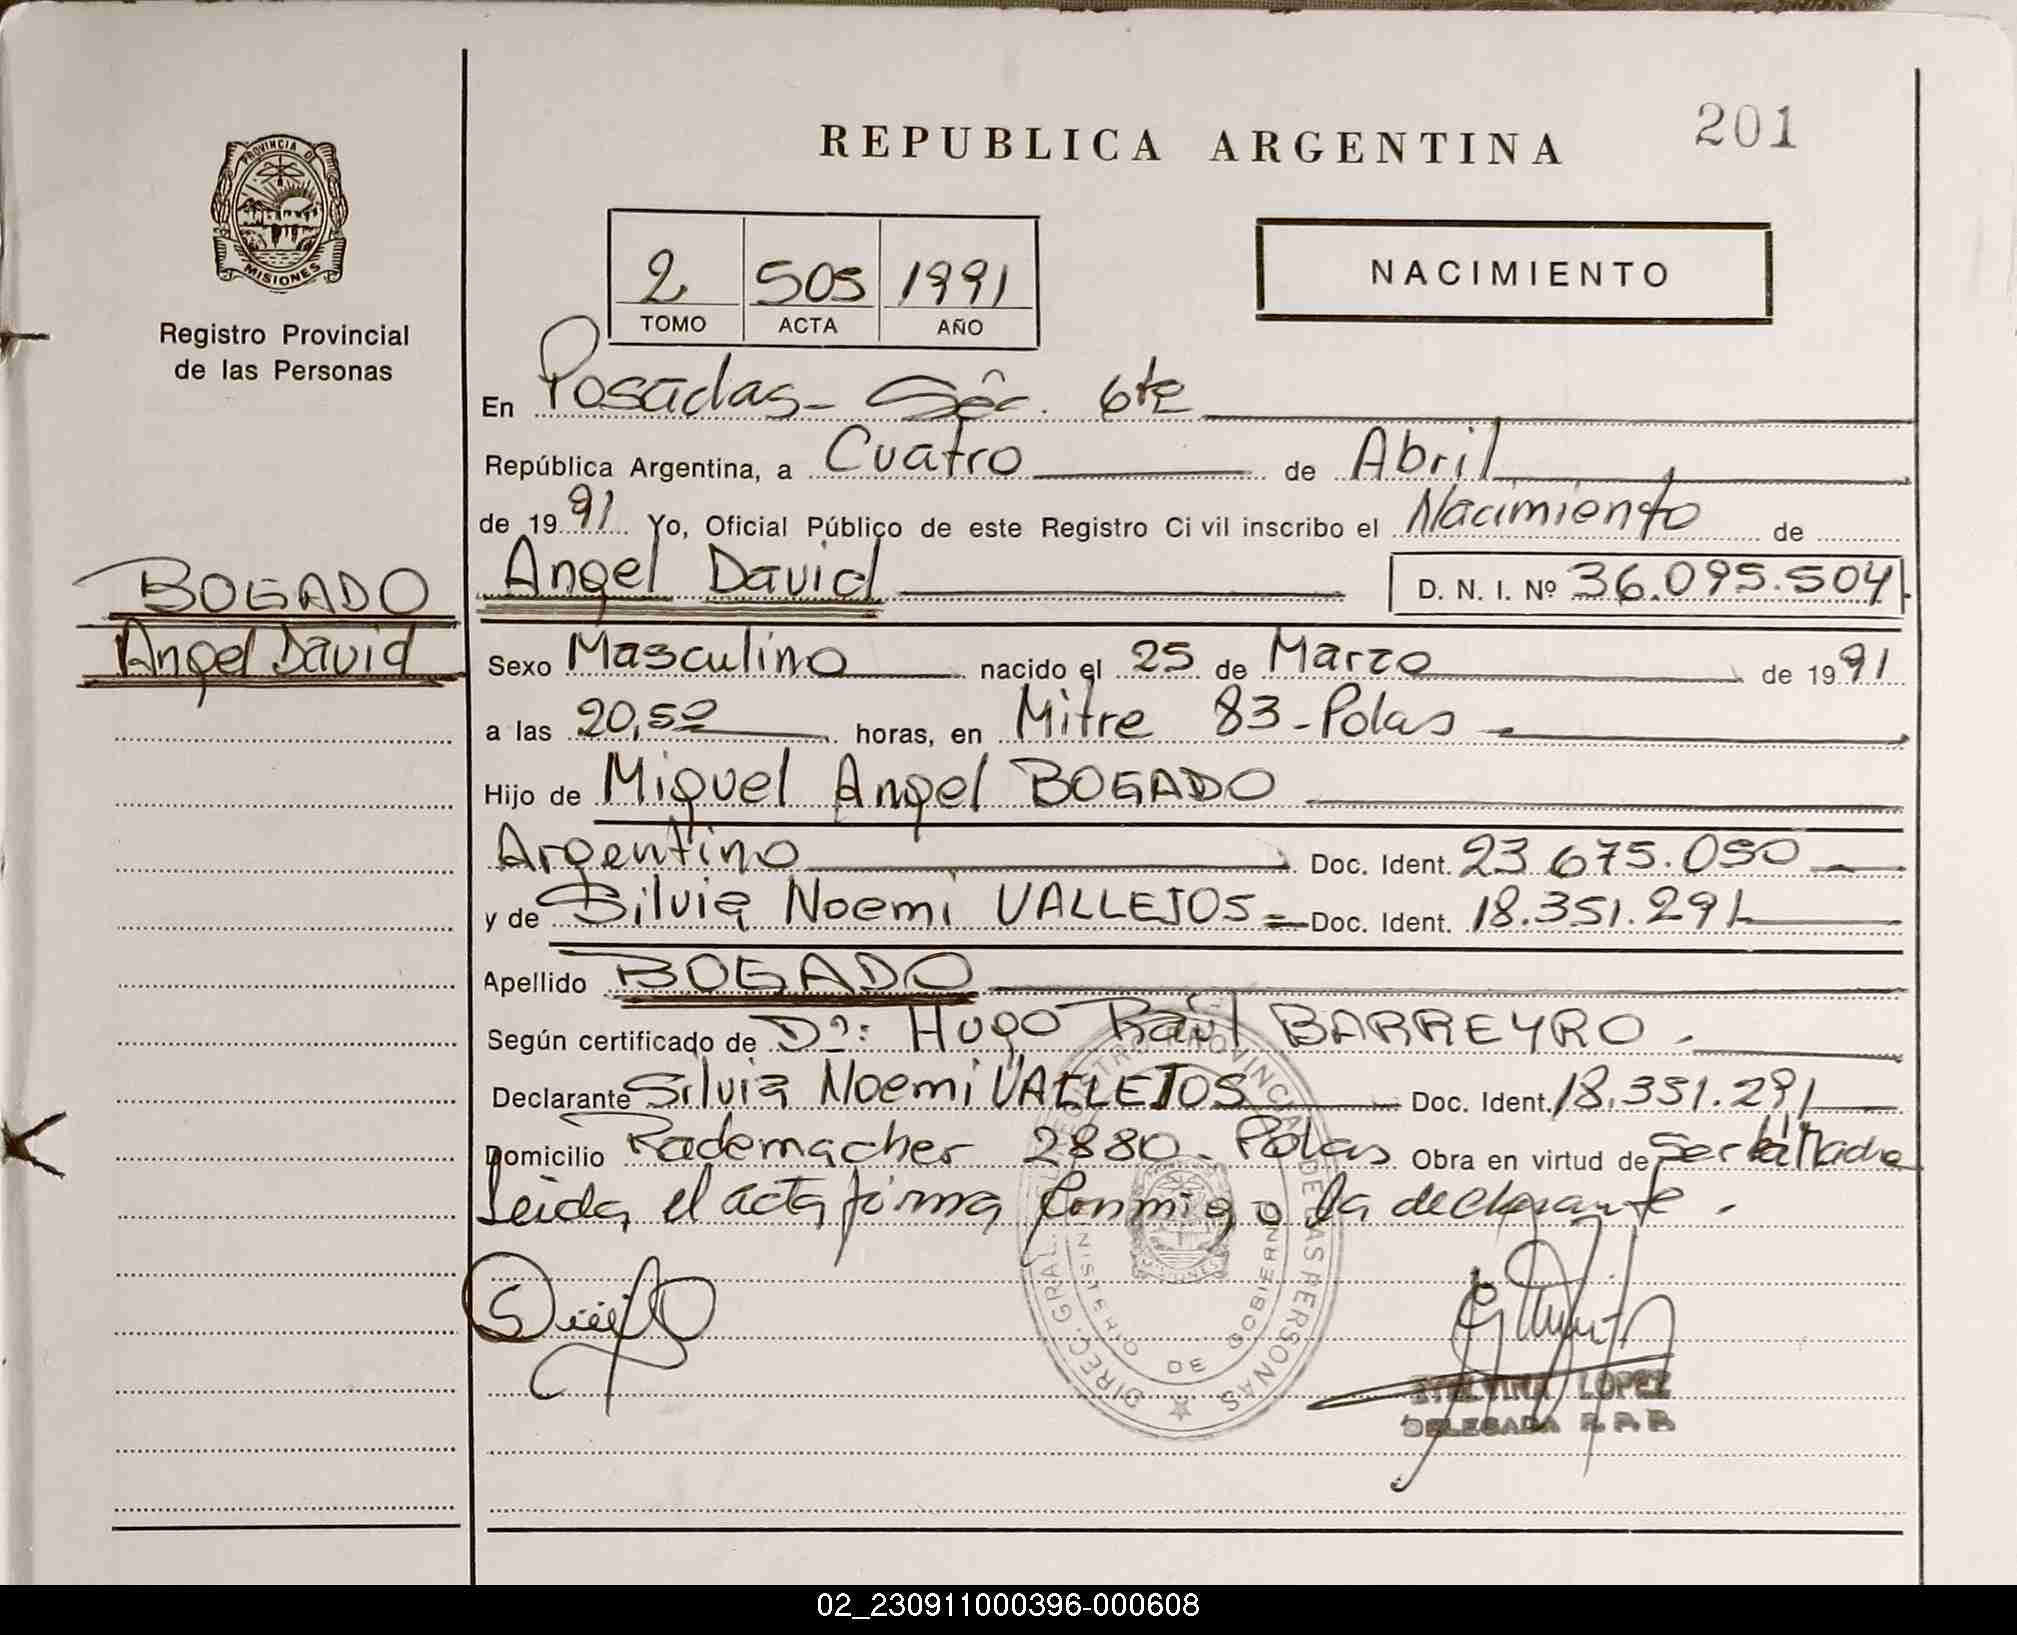 REPUBLICA ARGENTINA
201
PROVINCIA DE
MISIONES
Registro Provincial
de las Personas
2 505 1991
TOMO ACTA AÑO
NACIMIENTO
En Posadas - Sec. 6ta
República Argentina, a Cuatro de Abril
de 1991 Yo, Oficial Público de este Registro Civil inscribo el Nacimiento de
BOGADO
Angel David
Angel David D. N. I. Nº 36.095.504
Sexo Masculino nacido el 25 de Marzo de 1991
a las 20,50 horas, en Mitre 83 - Pdas
Hijo de Miguel Angel BOGADO
Argentino Doc. Ident. 23.675.050
y de Silvia Noemi VALLEJOS = Doc. Ident. 18.351.291
Apellido BOGADO
Según certificado de Dº: Hugo Raúl BARREYRO
Declarante Silvia Noemi VALLEJOS Doc. Ident. 18.351.291
Domicilio Rademacher 2880 - Pdas Obra en virtud de Ser la Madre
Leida el acta firma conmigo la declarante.
DIREC. GRAL. REGISTRO PROVINCIAL DE LAS PERSONAS
MINISTERIO DE GOBIERNO
LOPEZ
DELEGADA R.P.P.
02_230911000396-000608